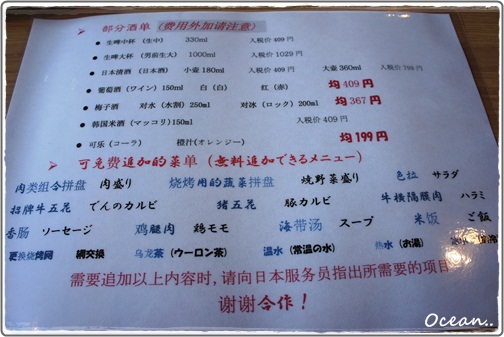 ➢ 部分酒单（费用外加请注意）
• 生啤中杯 （生中） 330ml 入税价 409 円
• 生啤大杯 （男前生大） 1000ml 入税价 1029 円
• 日本清酒 （日本酒） 小壷 180ml 入税价 409 円 大壷 360ml 入税价 798 円
• 葡萄酒（ワイン）150ml 白（白） 红（赤） 均 409 円
• 梅子酒 对水（水割）250ml 对冰（ロック）200ml 均 367 円
• 韩国米酒（マッコリ）150ml 入税价 409 円
• 可乐（コーラ） 橙汁(オレンジー) 均 199 円
➢ 可免费追加的菜单（無料追加できるメニュー）
肉类组合拼盘 肉盛り 烧烤用的蔬菜拼盘 焼野菜盛り 色拉 サラダ
招牌牛五花 でんのカルビ 猪五花 豚カルビ 牛横隔膜肉 ハラミ
香肠 ソーセージ 鸡腿肉 鶏モモ 海带汤 スープ 米饭 ご飯
更换烧烤网 網交換 乌龙茶（ウーロン茶） 温水（常温の水） 热水（お湯）
需要追加以上内容时,请向日本服务员指出所需要的项目
谢谢合作！
Ocean..